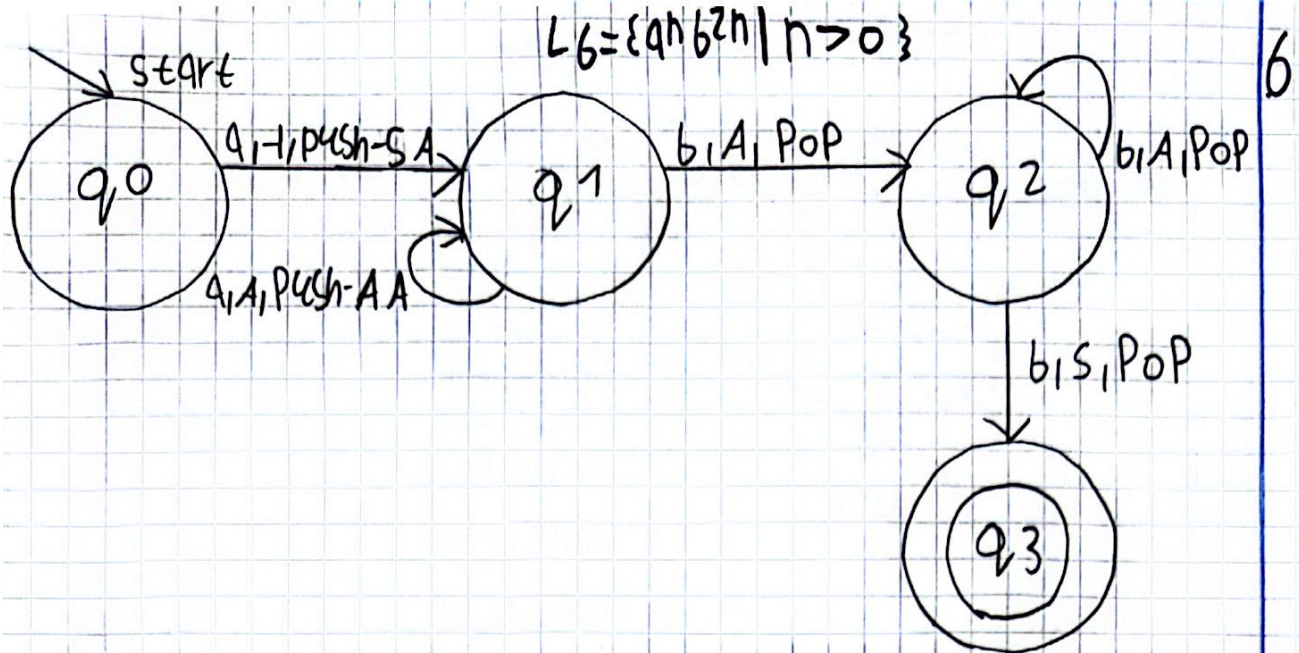 L6={anb2n|n>0}
6
start
q0
a,⊣,push-SA
a,A,Push-AA
q1
b,A,POP
q2
b,A,POP
b,S,POP
q3